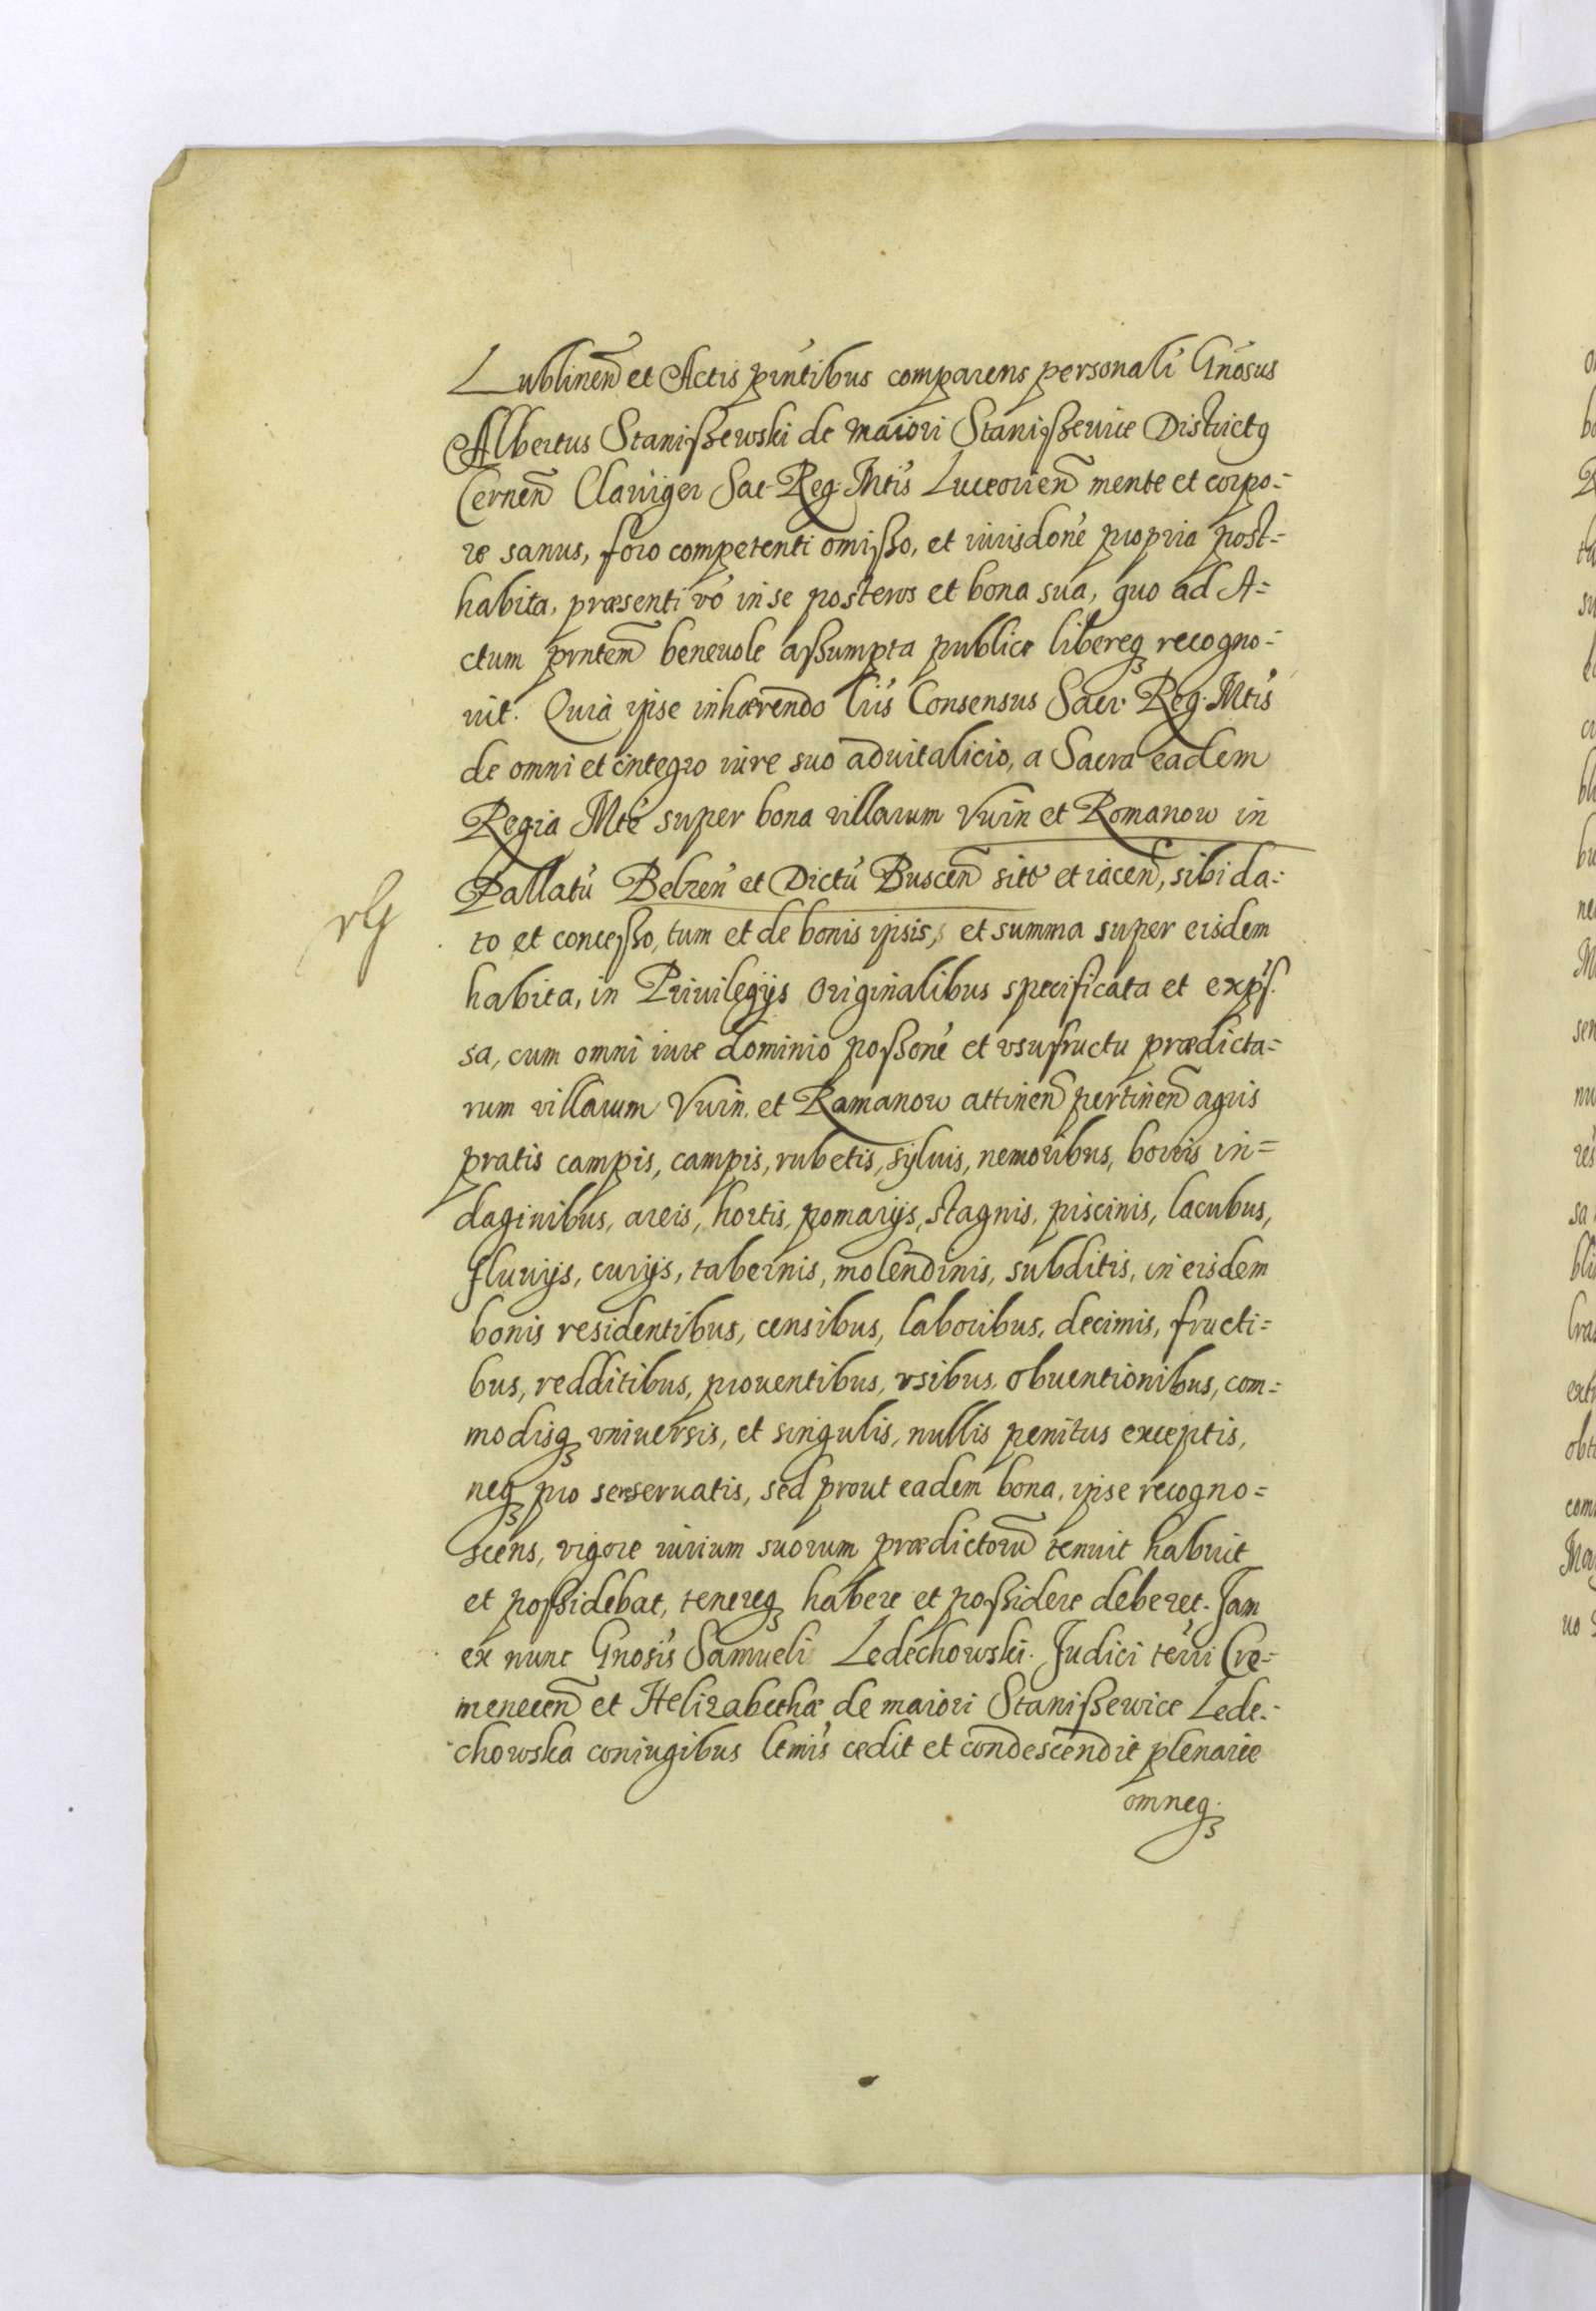 Lublineñ et Actis pñtibus comparens personalí Gñosus
Albertus Staniſzewski de maiori Staniſzewice Districtg
Cerneñ Clauiger Sac. Reg. Mtis Luceorieñ mente et corpo=
re sanus, foro competenti omiſso, et iurisdoné propria post=
habita, præsenti vó in se posteros et bona sua, quo ad A=
ctum pntem̃ beneuole aſsumpta publice libereqꝫ recogno=
uit. Quia ipse inhærendo lŕis Consensus Sacr. Reg. Mtis
de omni et integro iure suo aduitalicio, a Sacra eadem
Regia Mte super bona villarum Vuin et Romanow in
Pallatú Belzeń et Dictú Busceñ sitt et iaceñ, sibi da=
rG
to et conceſso, tum et de bonis ipsis, et summa super eisdem
habita, in Priuilegijs Originalibus specificata et expŕſ.
sa, cum omni iure dominio poſsoné et vsufructu prædicta=
rum villarum Vuin et Ramanow attineñ pertineñ agris
pratis campis, campis, rubetis, syluis, nemoribus, borris in=
daginibus, areis, hortis, pomarijs, stagnis, piscinis, lacubus,
fluuijs, curijs, tabernis, molendinis, subditis, in eisdem
bonis residentibus, censibus, laboribus, decimis, fructi=
bus, redditibus, prouentibus, vsibus, obuentionibus, com=
modisqꝫ vniuersis, et singulis, nullis penitus exceptis,
neqꝫ pro se reseruatis, sed prout eadem bona, ipse recogno=
scens, vigore iurium suorum prædictorũ tenuit habuit
et poſsidebat, tenereqꝫ habere et poſsidere deberet. Jam
ex nunc Gnosis Samueli Ledechowski Judici terŕi Cre=
meneceñ et Helizabethæ de maiori Staniſzewice Lede=
chowska coniugibus ltmis cedit et condescendit plenarie
omneqꝫ